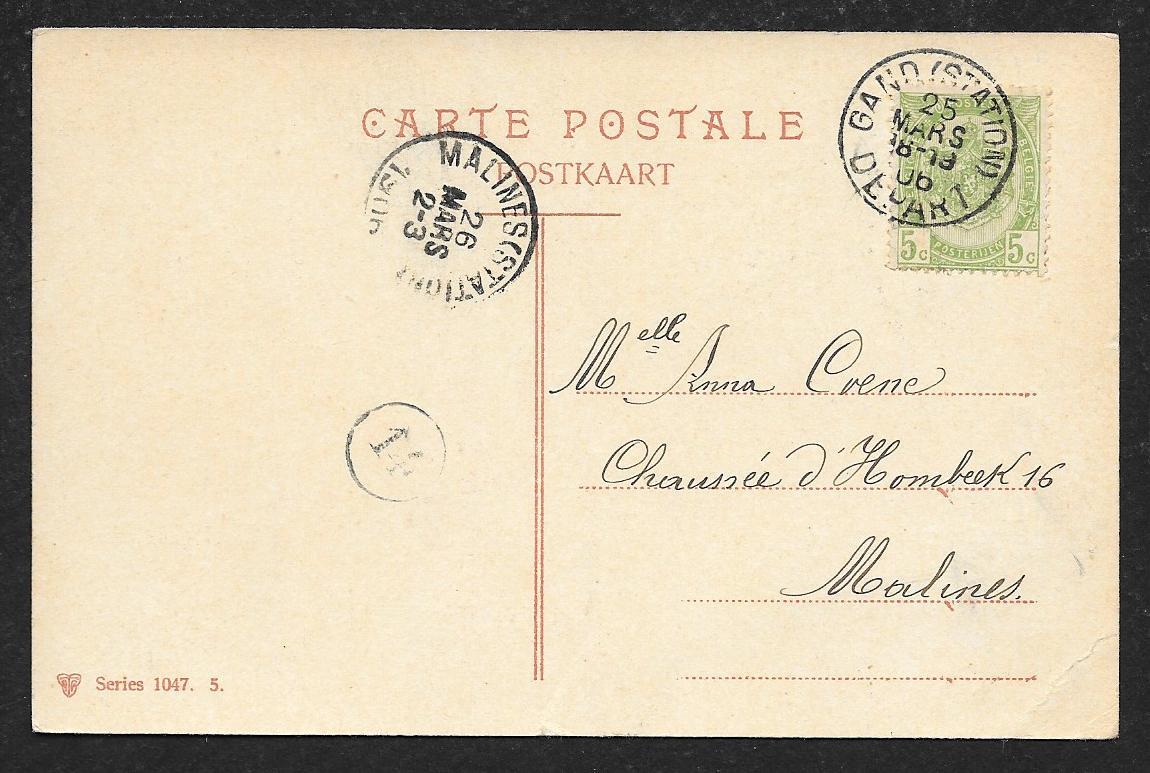 CARTE POSTALE
POSTKAART
GAND (STATION)
25
MARS
18-19
06
DEPART
MALINES (STATION)
26
MARS
2-3
BELGIE
5c POSTERIJEN 5c
Melle Anna Coene
Chaussée d'Hombeek 16
Malines.
14
Series 1047. 5.